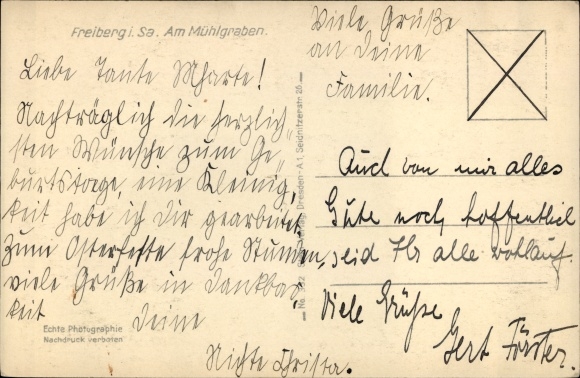 Freiberg i. Sa. Am Mühlgraben.
Liebe Tante Mharte!
Nachträglich die herzlich-
sten Wünsche zum Ge-
burtstage, eine Kleinig,
keit habe ich dir gearbeitet
Zum Osterfeste frohe Stunden,
viele Grüße in Dankbar,
keit
Deine
Nichte Christa.
Echte Photographie
Nachdruck verboten
Viele Grüße
an Deine
Familie.
Dresden-A 1, Seidnitzerstr. 26
Auch von mir alles
Gute noch, hoffentlich
seid Ihr alle wohlauf.
Viele Grüße
Gert Förster.